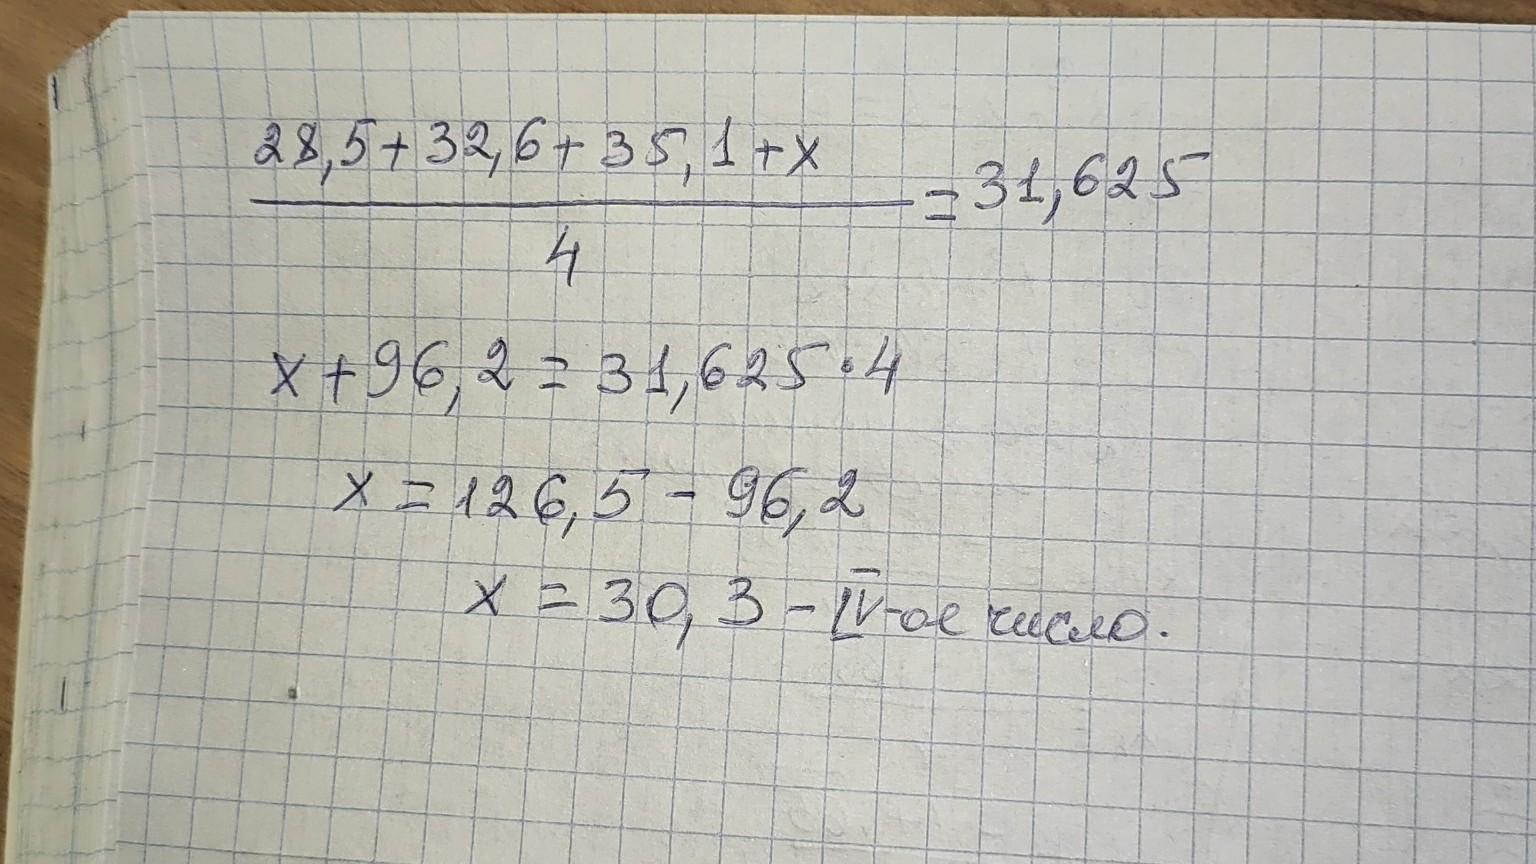 28,5+32,6+35,1+x
————— = 31,625
4
x+96,2=31,625·4
x=126,5-96,2
x=30,3-IV-ое число.